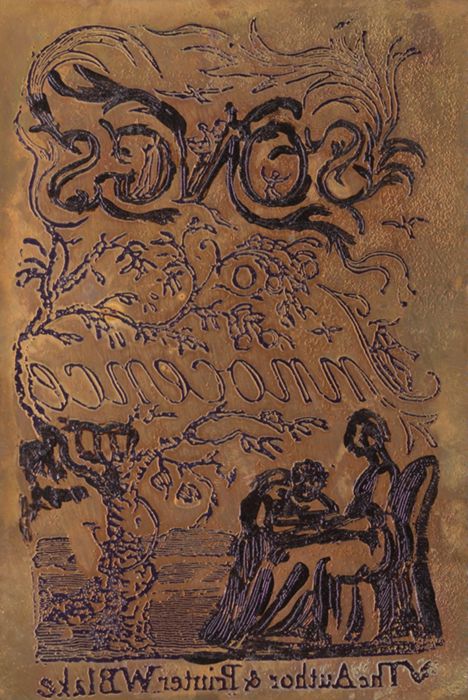 SONGS
Innocence
The Author & Printer W Blake